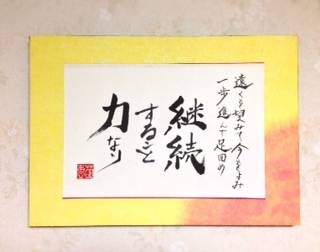 遠くを望みて今をふみ
一歩進んで足固め
継続
すること
力なり